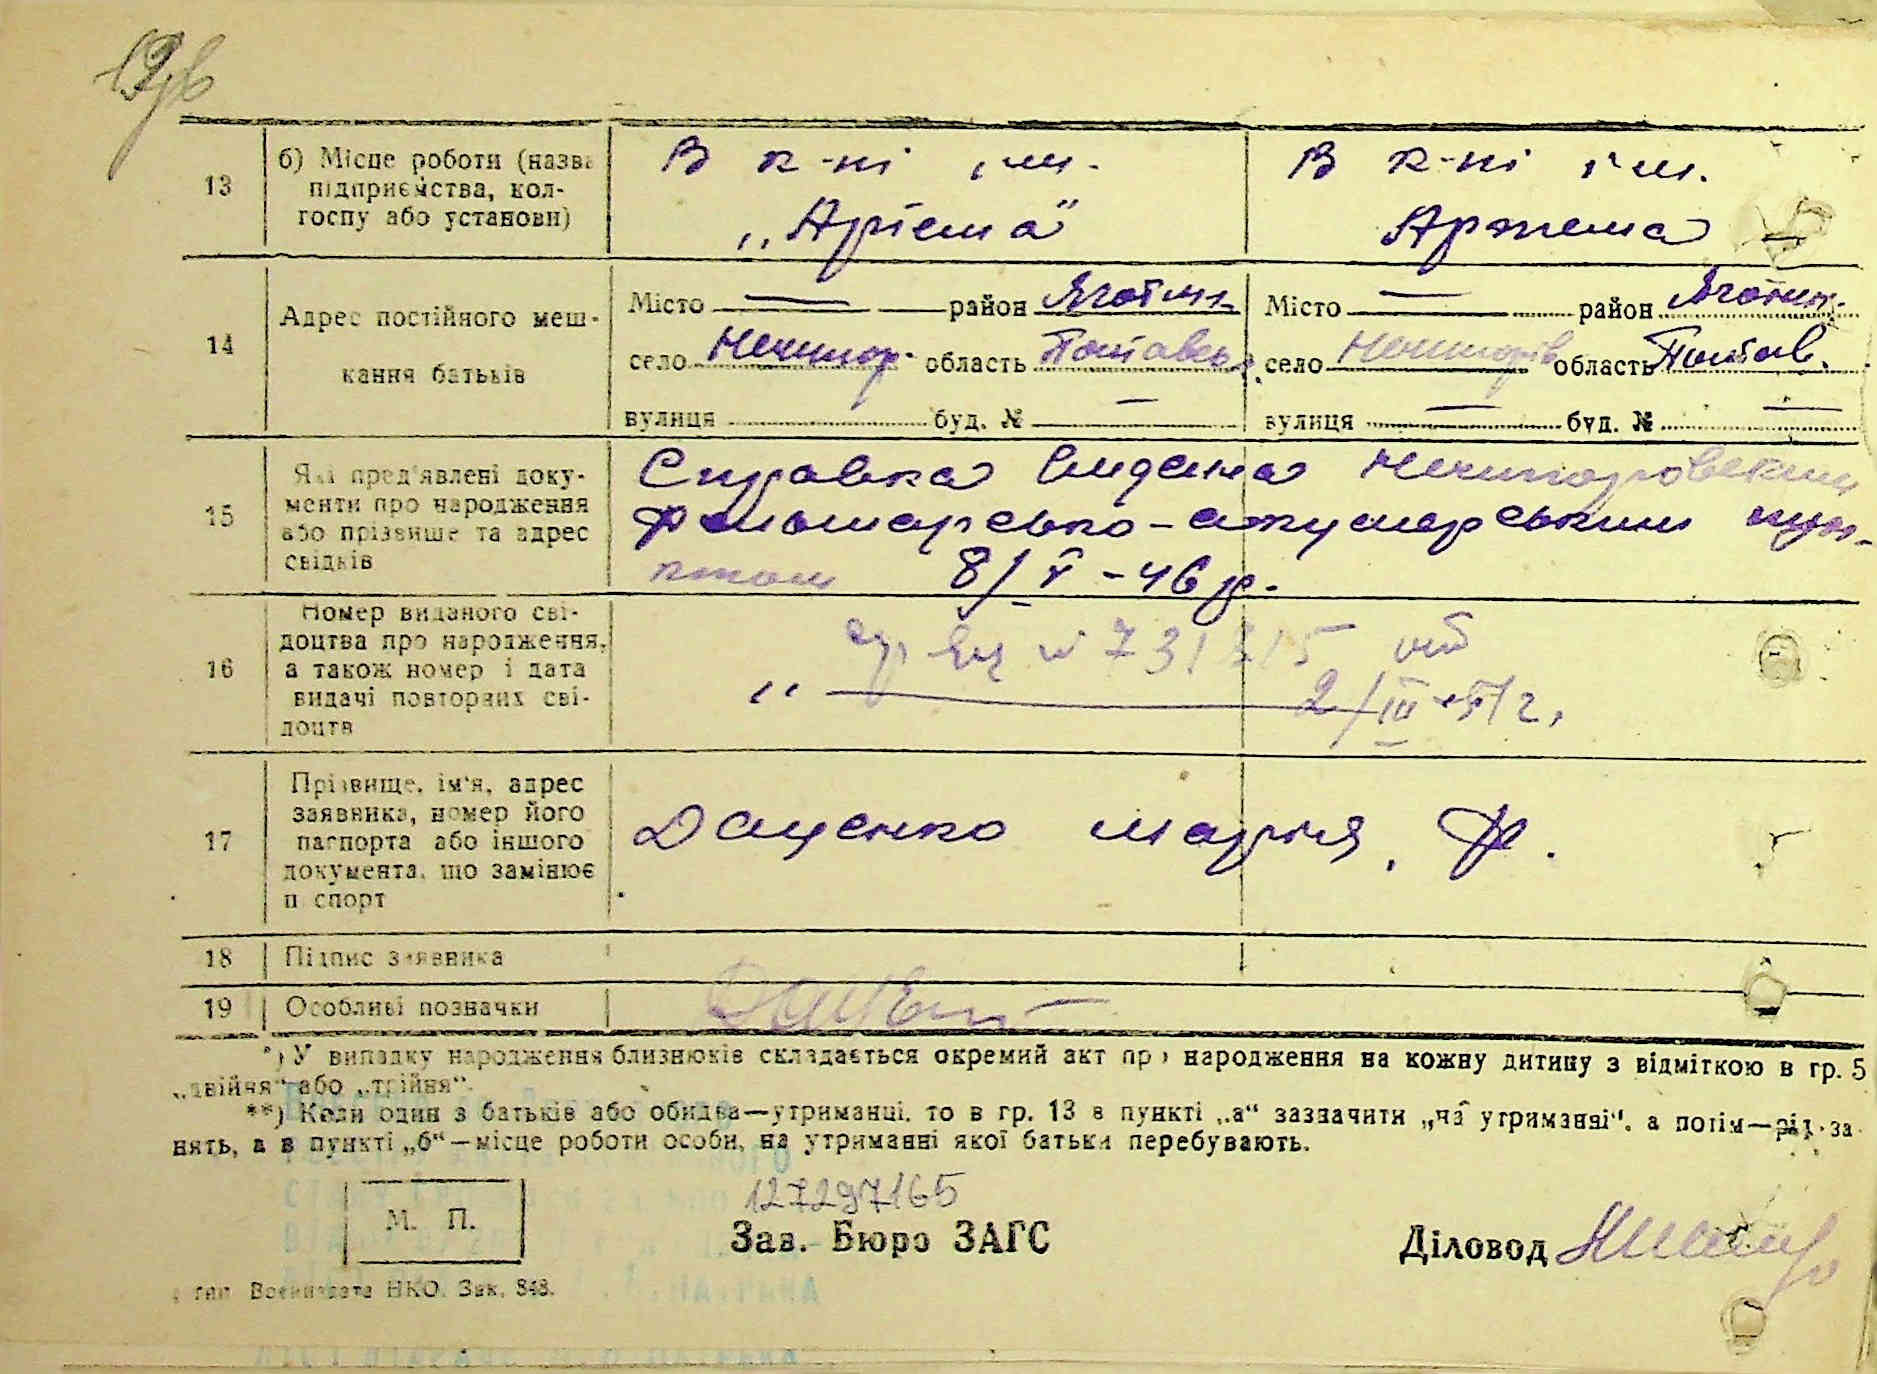 13
б) Місце роботи (назва
підприємства, кол-
госпу або установи)
В к-пі ім.
„Артема"
В к-пі ім.
Артема
14
Адрес постійного меш-
кання батьків
Місто — район Яготин.
село Нечипор. область Полтавськ.
вулиця буд. № —
Місто — район Яготин.
село Нечипорів область Полтав.
вулиця — буд. № —
15
Які пред'явлені доку-
менти про народження
або прізвище та адрес
свідків
Справка видана Нечипоровским
фельшарсько-акушерським пун-
ктом 8/V-46 р.
16
Номер виданого сві-
доцтва про народження,
а також номер і дата
видачі повторних сві-
доцтв
№ 731315 від
„ — 2/III-51 г.
17
Прізвище, ім'я, адрес
заявника, номер його
паспорта або іншого
документа, що замінює
п спорт
Даценко Марія. Ф.
18
Підпис заявника
19
Особливі позначки
Даценк
*) У випадку народження близнюків складається окремий акт про народження на кожну дитину з відміткою в гр. 5
„двійня" або „трійня".
**) Коли один з батьків або обидва—утриманці, то в гр. 13 в пункті „а" зазначити „на утриманні", а потім—рід за-
нять, а в пункті „б"—місце роботи особи, на утриманні якої батьки перебувають.
М. П.
127297165
Зав. Бюро ЗАГС
Діловод
тип Воениздата НКО. Зак. 848.